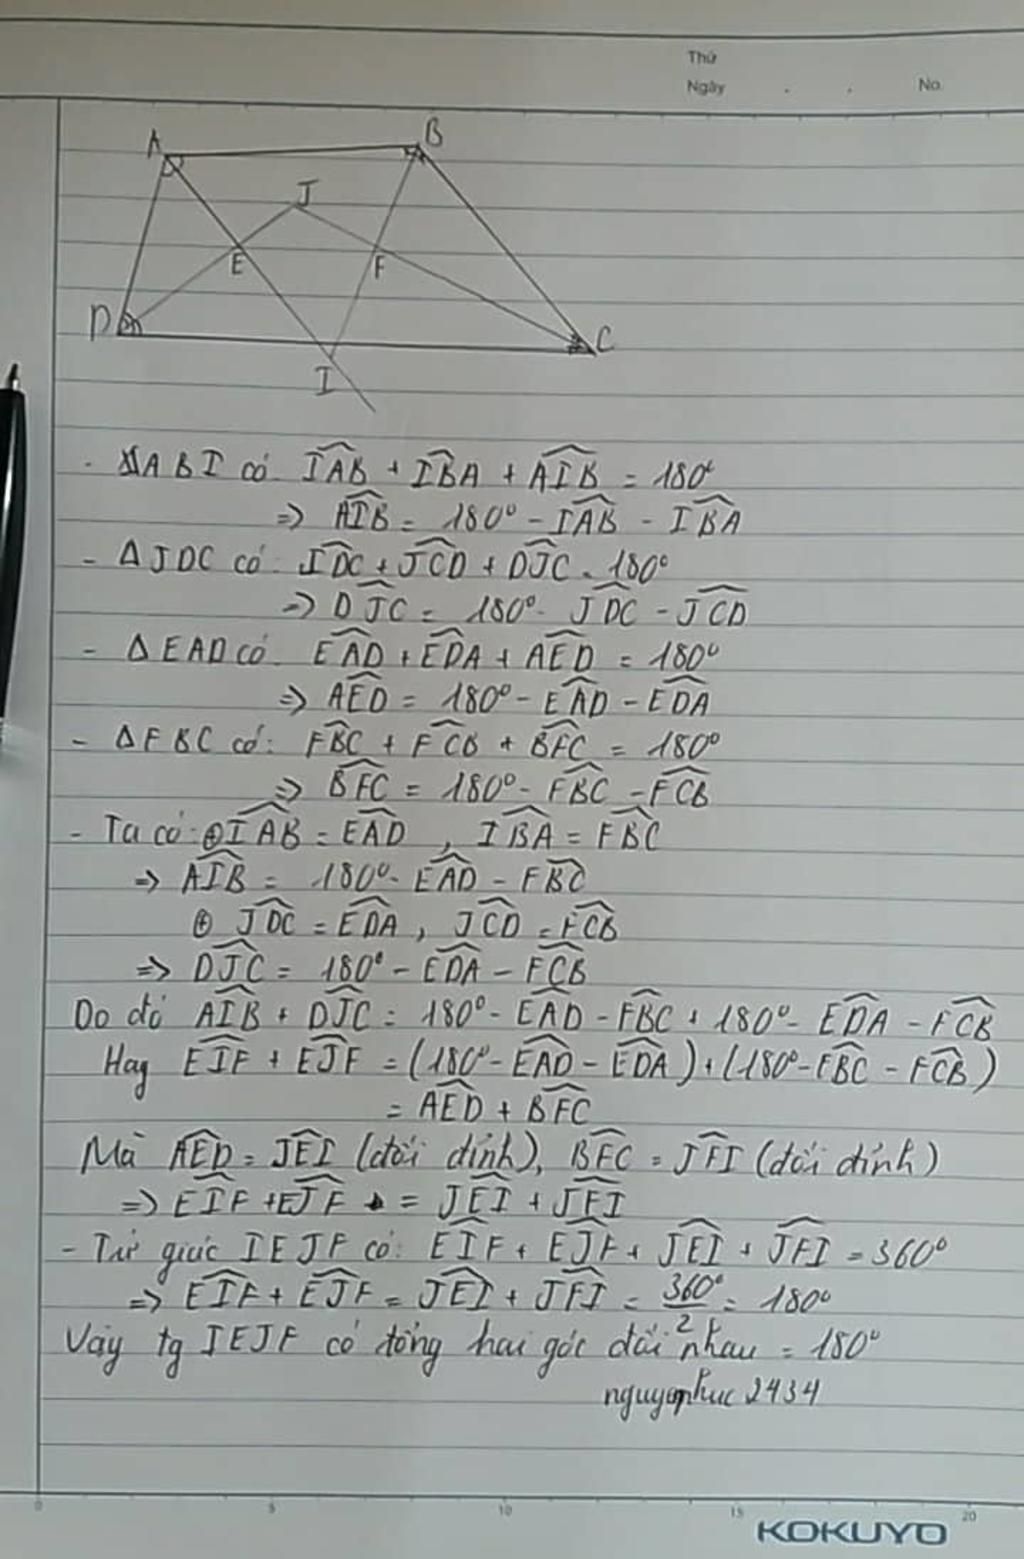 Thứ
Ngày . . No.
A B
J
E F
D C
I
- ΔABI có: IAB + IBA + AIB = 180°
=> AIB = 180° - IAB - IBA
- ΔJDC có: JDC + JCD + DJC = 180°
=> DJC = 180° - JDC - JCD
- ΔEAD có: EAD + EDA + AED = 180°
=> AED = 180° - EAD - EDA
- ΔFBC có: FBC + FCB + BFC = 180°
=> BFC = 180° - FBC - FCB
- Ta có: ⊕ IAB = EAD , IBA = FBC
=> AIB = 180° - EAD - FBC
⊕ JDC = EDA , JCD = FCB
=> DJC = 180° - EDA - FCB
Do đó AIB + DJC = 180° - EAD - FBC + 180° - EDA - FCB
Hay EIF + EJF = (180° - EAD - EDA) + (180° - FBC - FCB)
= AED + BFC
Mà AED = JEI (đối đỉnh), BFC = JFI (đối đỉnh)
=> EIF + EJF = JEI + JFI
- Tứ giác IEJF có: EIF + EJF + JEI + JFI = 360°
=> EIF + EJF = JEI + JFI = 360°/2 = 180°
Vậy tg IEJF có tổng hai góc đối nhau = 180°
nguyenphuc2434
0 5 10 15 20
KOKUYO